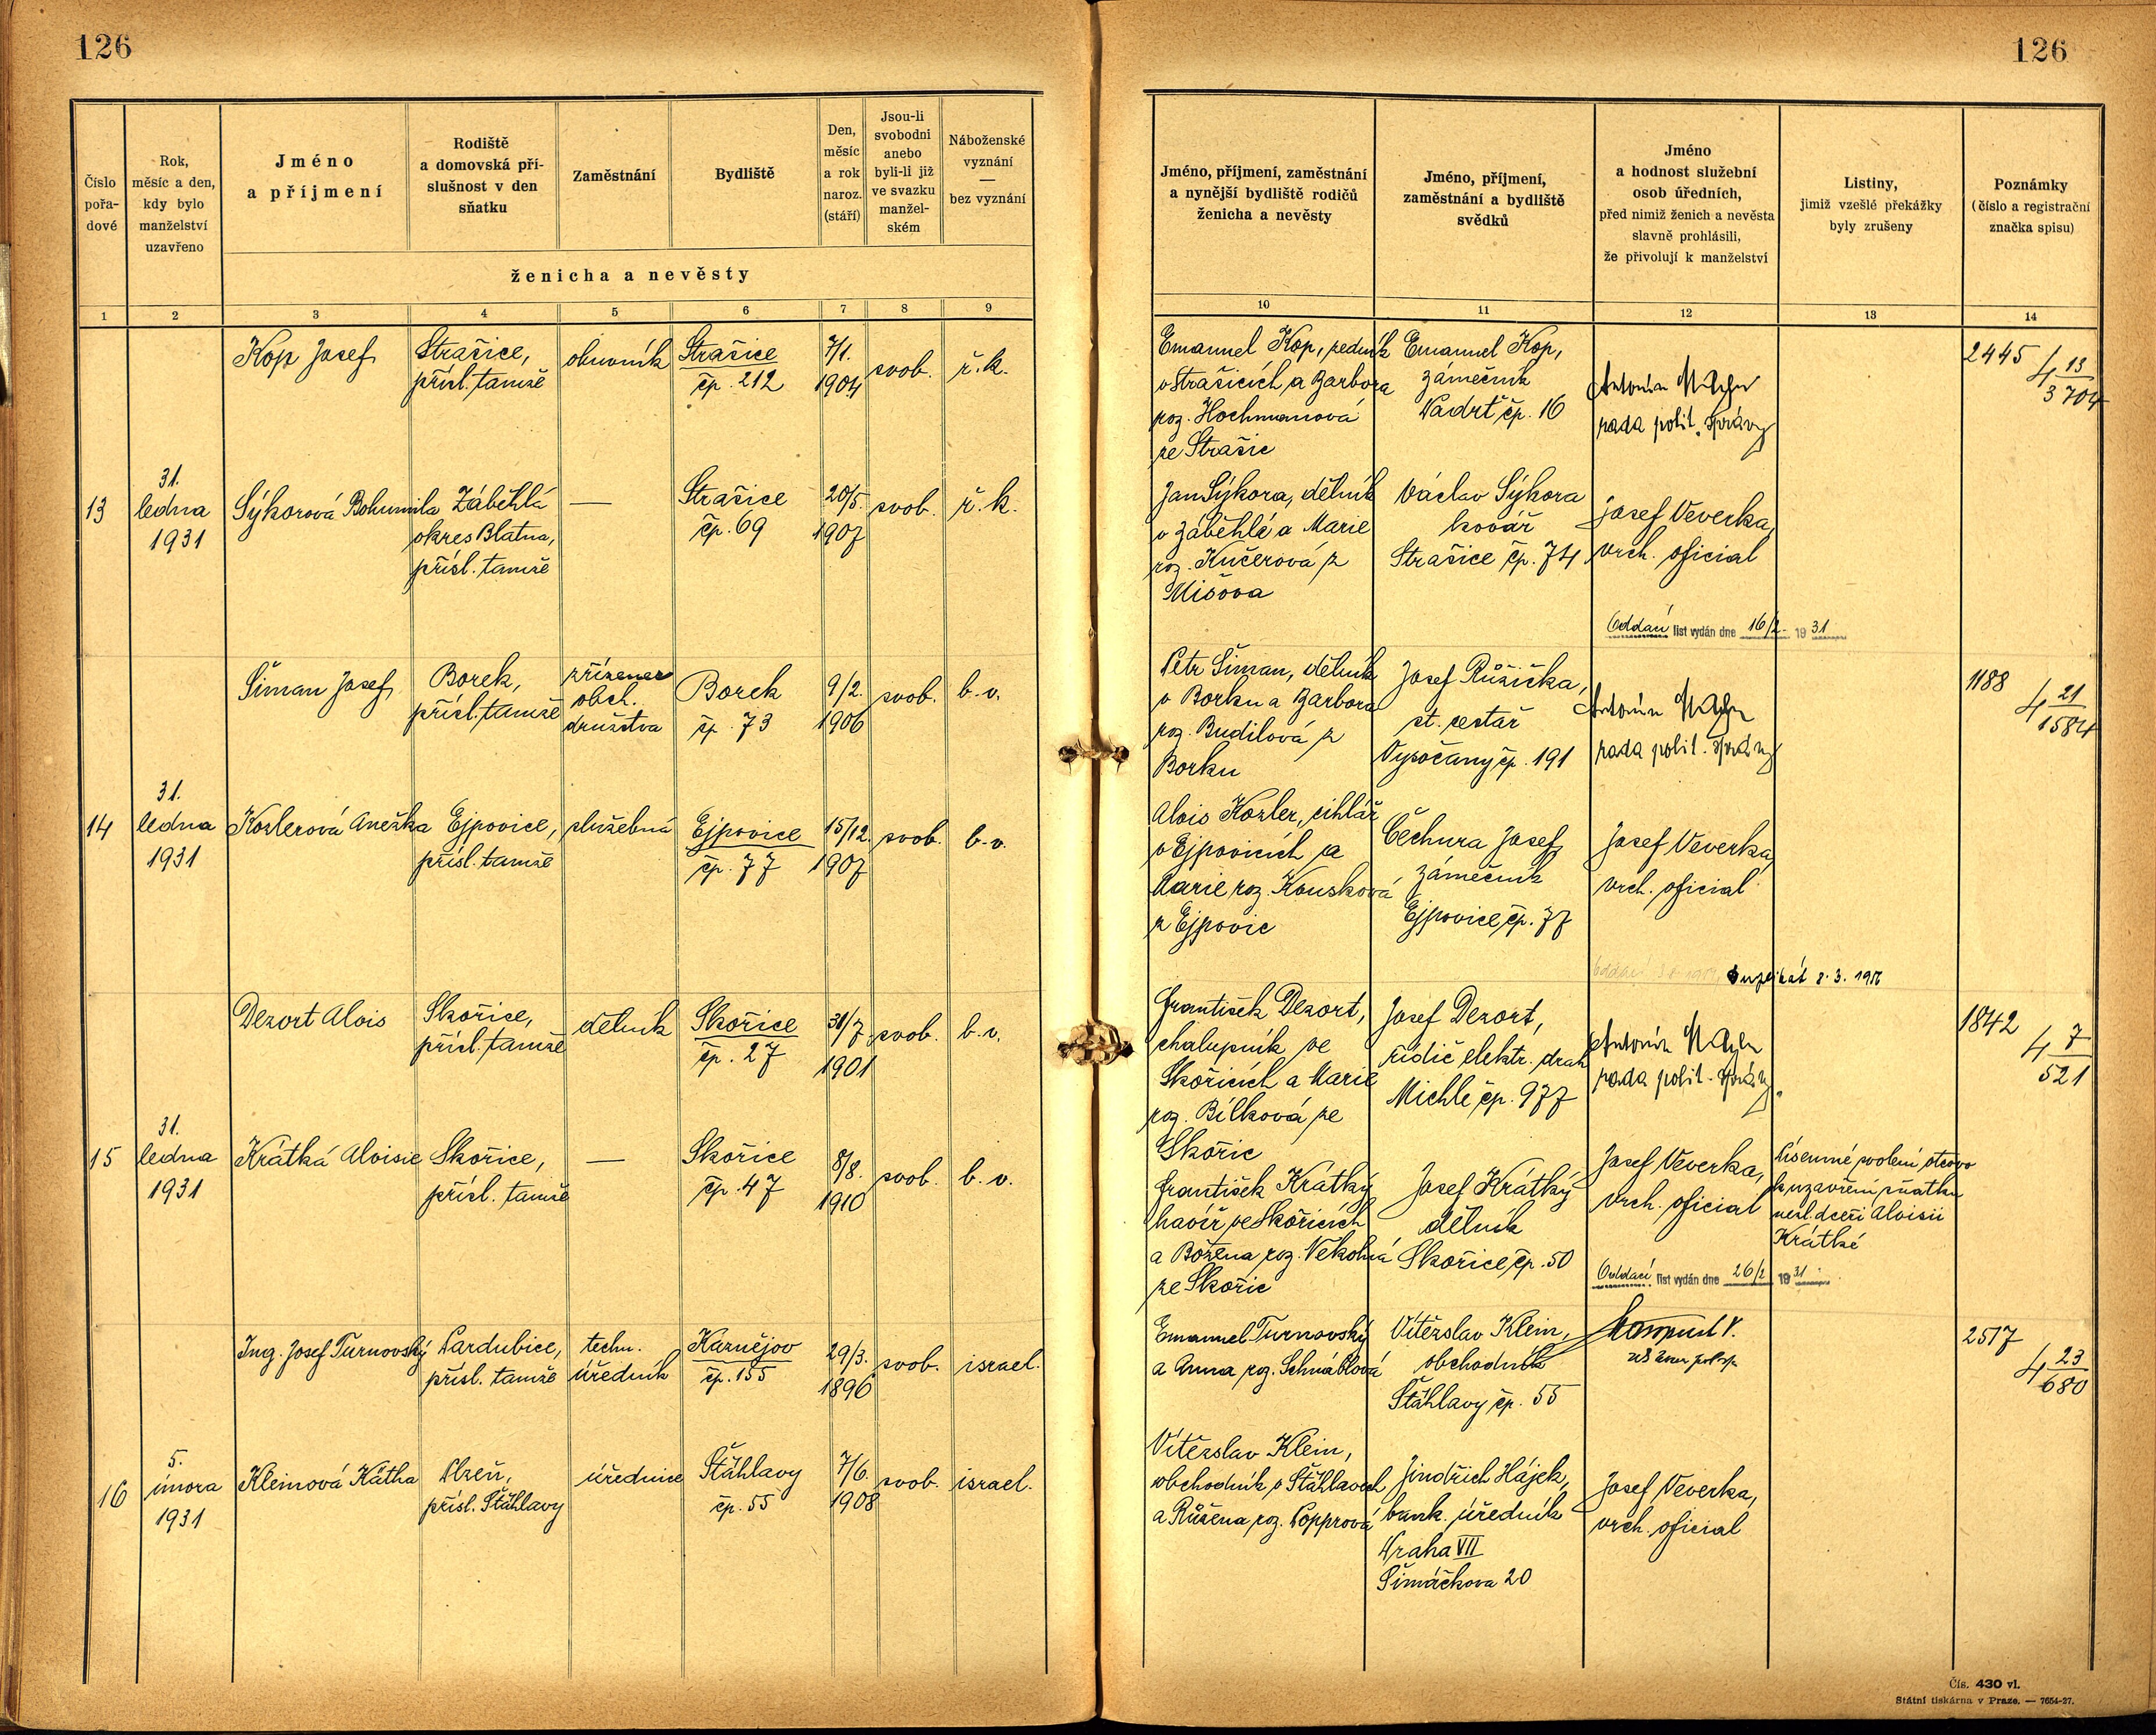 126
126
Číslo pořa-dové
Rok, měsíc a den, kdy bylo manželství uzavřeno
Jméno a příjmení
Rodiště a domovská pří-slušnost v den sňatku
Zaměstnání
Bydliště
Den, měsíc a rok naroz. (stáří)
Jsou-li svobodni anebo byli-li již ve svazku manžel-ském
Náboženské vyznání — bez vyznání
ženicha a nevěsty
Jméno, příjmení, zaměstnání a nynější bydliště rodičů ženicha a nevěsty
Jméno, příjmení, zaměstnání a bydliště svědků
Jméno a hodnost služební osob úředních, před nimiž ženich a nevěsta slavně prohlásili, že přivolují k manželství
Listiny, jimiž vzešlé překážky byly zrušeny
Poznámky (číslo a registrační značka spisu)
1 2 3 4 5 6 7 8 9 10 11 12 13 14
Kop Josef
Strašice,
přísl. tamže
obuvník
Strašice
čp. 212
7/1.
1904
svob.
ř.k.
Emanuel Kop, zedník
v Strašicích a Barbora
roz. Hochmanová
ze Strašic
Emanuel Kop,
zámečník
Padrť čp. 16
Antonín
rada polit. správy
2445 4 13/3704
13
31.
ledna
1931
Sýkorová Bohumila
Záběhlá
okres Blatna,
přísl. tamže
—
Strašice
čp. 69
20/5.
1907
svob.
ř.k.
Jan Sýkora, dělník
v Záběhlé a Marie
roz. Kučerová z
Mišova
Václav Sýkora
kovář
Strašice čp. 74
Josef Veverka,
vrch. oficial
Oddací list vydán dne 16/2. 1931
Šiman Josef
Borek,
přísl. tamže
zřízenec
obch.
družstva
Borek
čp. 73
9/2.
1906
svob.
b.v.
Petr Šiman, dělník
v Borku a Barbora
roz. Budilová z
Borku
Josef Růžička,
st. cestář
Vysočany čp. 191
Antonín
rada polit. správy
1188 4 21/1584
14
31.
ledna
1931
Kozlerová Anežka
Ejpovice,
přísl. tamže
služebná
Ejpovice
čp. 77
15/12.
1907
svob.
b.v.
Alois Kozler, cihlář
v Ejpovicích a
Marie roz. Kousková
z Ejpovic
Čechura Josef,
zámečník
Ejpovice čp. 77
Josef Veverka,
vrch. oficial
Duplikát 8.3.
Dezort Alois
Skořice,
přísl. tamže
dělník
Skořice
čp. 27
31/7.
1901
svob.
b.v.
František Dezort,
chalupník ve
Skořicích a Marie
roz. Bílková ze
Skořic
Josef Dezort,
řidič elektr. drah
Michle čp. 977
Antonín
rada polit. správy
1842 4 7/521
15
31.
ledna
1931
Krátká Aloisie
Skořice,
přísl. tamže
—
Skořice
čp. 47
8/8.
1910
svob.
b.v.
František Krátký
havíř ve Skořicích
a Božena roz. Nekolná
ze Skořic
Josef Krátký
dělník
Skořice čp. 50
Josef Veverka,
vrch. oficial
Písemné svolení otcovo
k uzavření sňatku
nezl. dceři Aloisii
Krátké
Oddací list vydán dne 26/2 1931
Ing. Josef Turnovský
Pardubice,
přísl. tamže
techn.
úředník
Kaznějov
čp. 155
29/3.
1896
svob.
israel.
Emanuel Turnovský
a Anna roz. Schnáblová
Vítězslav Klein,
obchodník
Šťáhlavy čp. 55
2517 4 23/680
16
5.
února
1931
Kleinová Kätha
Plzeň,
přísl. Šťáhlavy
úřednice
Šťáhlavy
čp. 55
7/6.
1908
svob.
israel.
Vítězslav Klein,
obchodník v Šťáhlavech
a Růžena roz. Popprová
Jindřich Hájek,
bank. úředník
Praha VII
Šimáčkova 20
Josef Veverka,
vrch. oficial
Čís. 430 vl.
Státní tiskárna v Praze. — 7654-27.